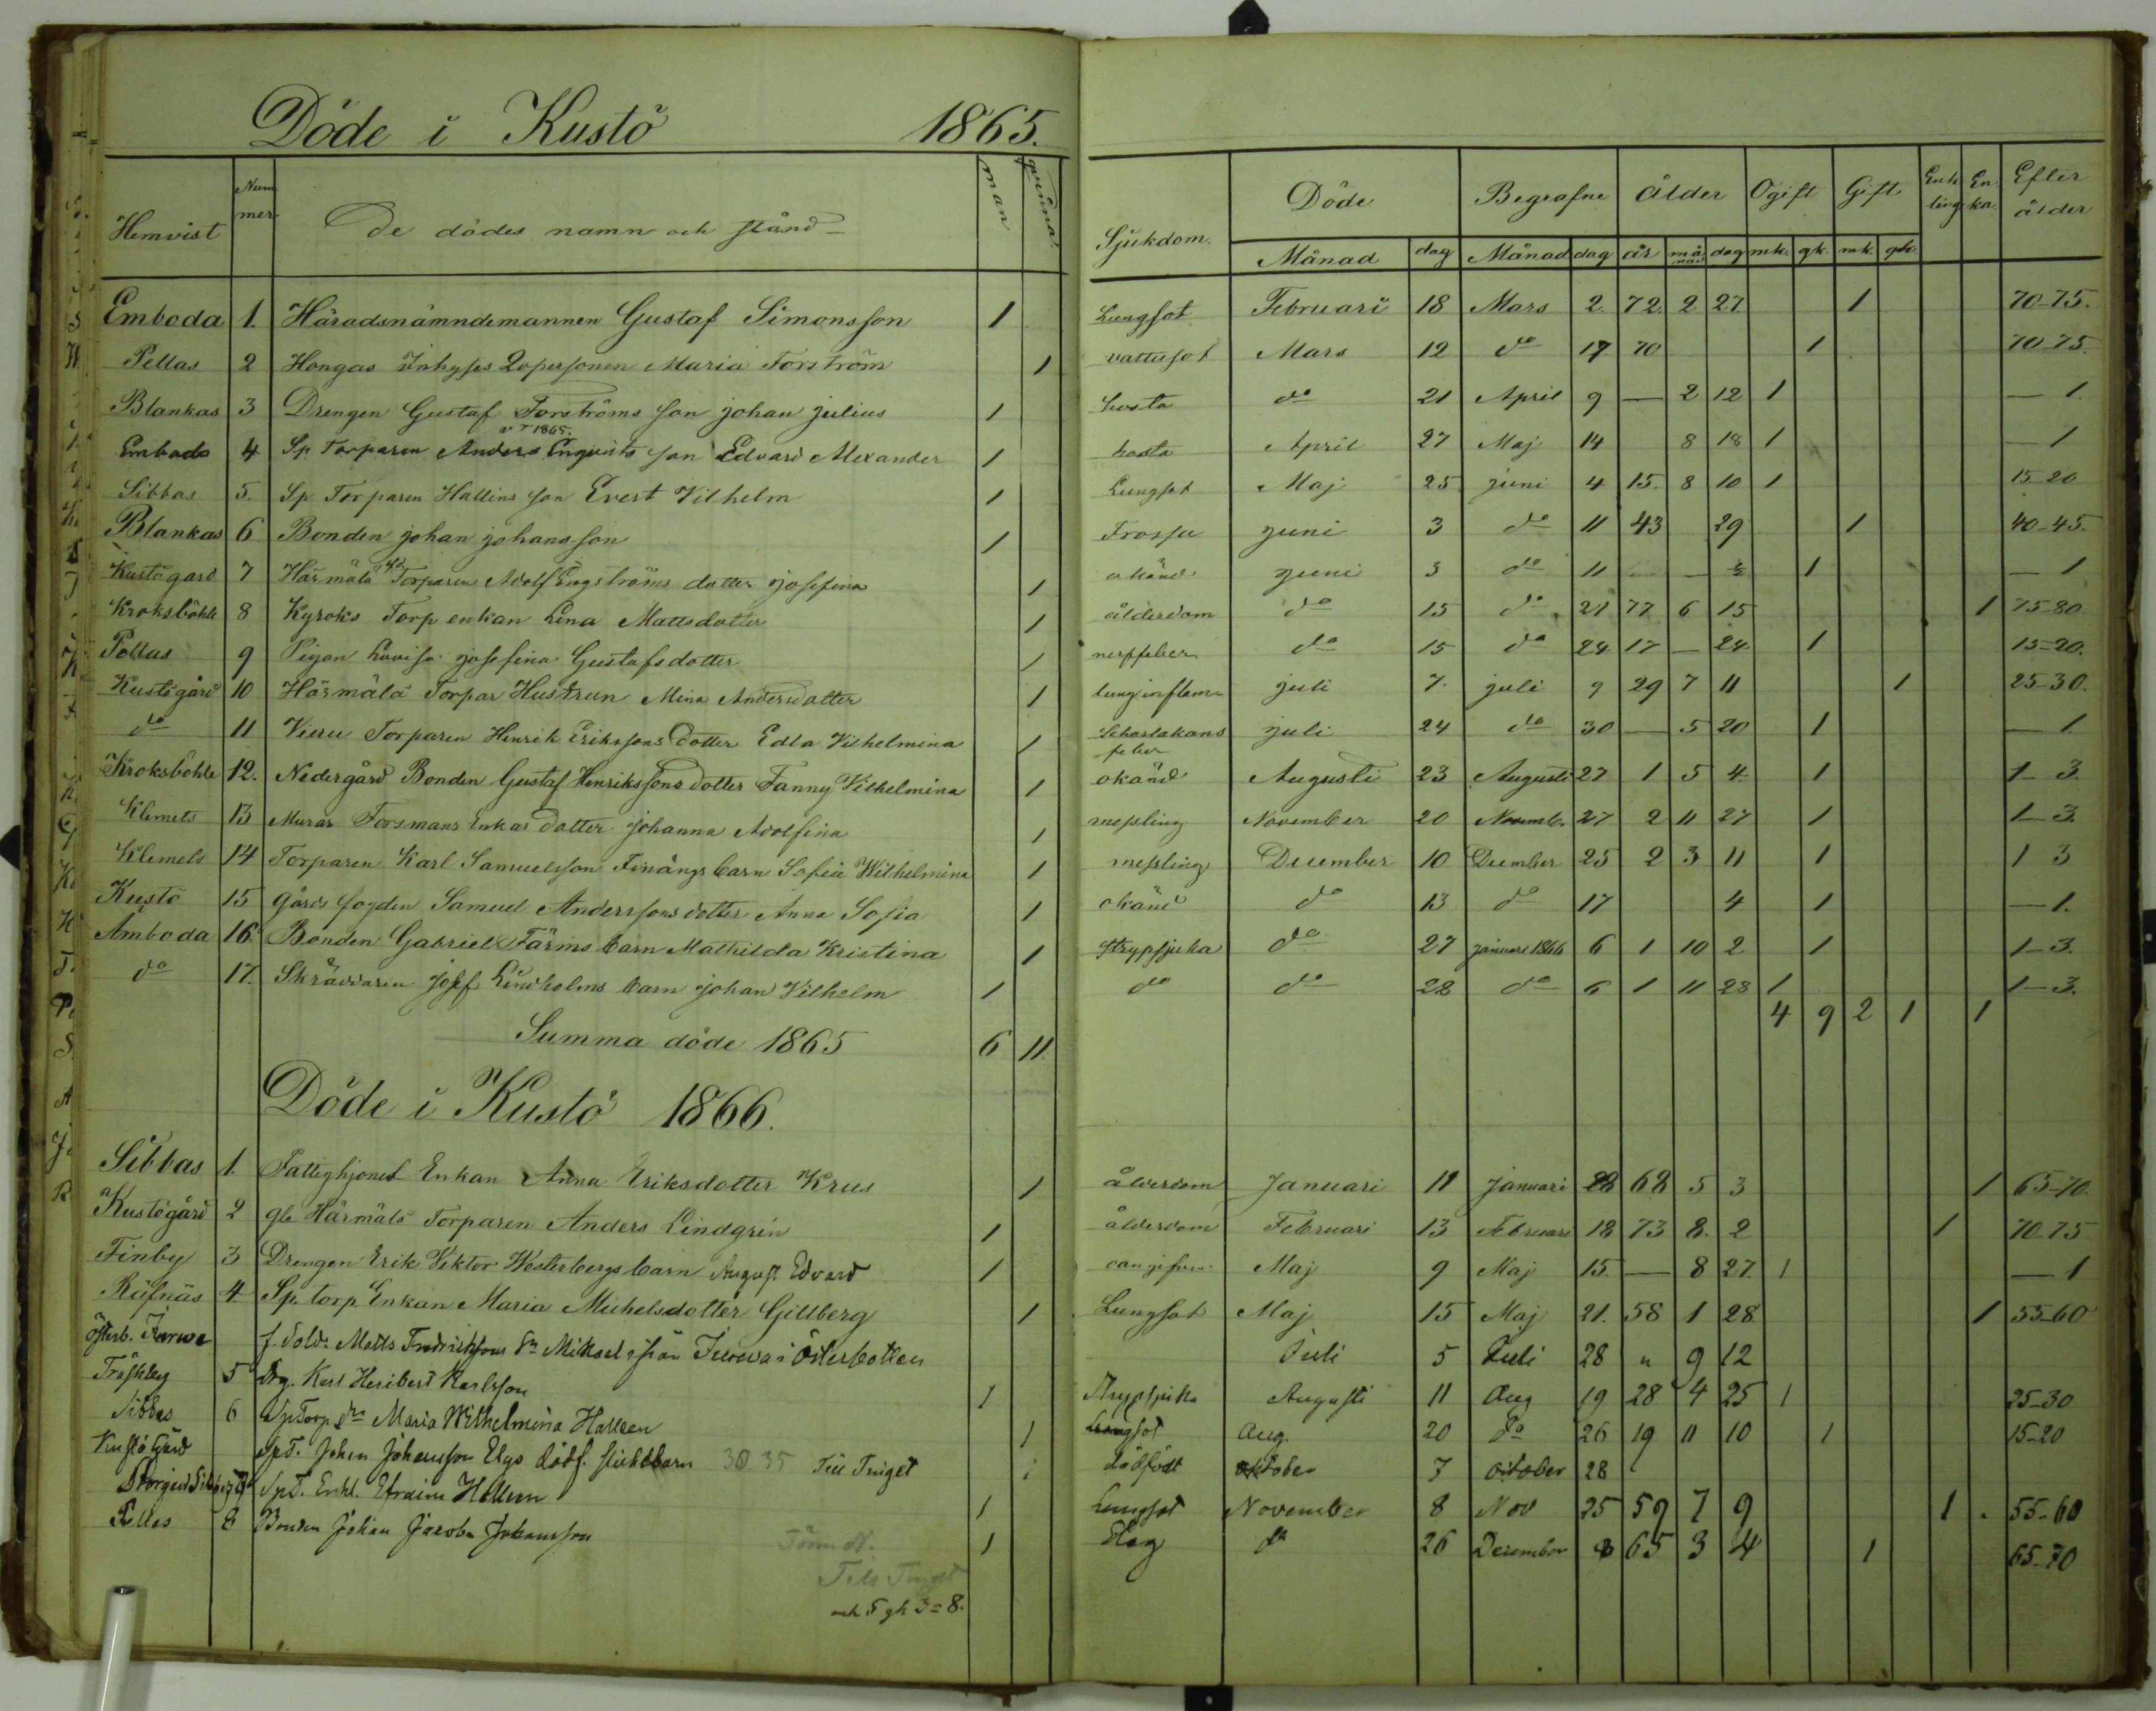 Döde i Kustö 1865.
Hemvist Nummer De dödes namn och stånd man qvinna Sjukdom. Döde Begrafne ålder Ogift Gift Enkling Enka Efter ålder
Månad dag Månad dag år månad dag mk. gk. mk. gk.
Emboda 1. Häradsnämndemannen Gustaf Simonsson 1 Lungsot Februari 18 Mars 2. 72. 2 27. 1 70-75.
Pellas 2 Hongas Inhyses Qvpersonen Maria Forström 1 vattusot Mars 12 do 17 70 1 70-75.
Blankas 3 Drengen Gustaf Forströms son johan julius 1 hosta do 21 April 9 — 2 12 1 — 1.
Emboda 4 Sp Torparen Anders Enqvists son Edvard Alexander 1 hosta April 27 Maj 14 8 18 1 — 1
Sibbas 5. Sp Torparen Hallins son Evert Vilhelm 1 Lungsot Maj 25 juni 4 15. 8 10 1 15-20
Blankas 6 Bonden johan johansson 1 Frossa juni 3 do 11 43 29 1 40-45.
Kustögård 7 Härmälä Torparen Adolf Engströms dotter josefina 1 okänd juni 3 do 11 — — ½ 1 — 1
Kroksböhle 8 Kyroks Torp enkan Lena Mattsdotter 1 ålderdom do 15 do 21 77 6 15 1 75-80
Pellas 9 Pigan Lovisa josefina Gustafsdotter 1 nerffeber do 15 do 24 17 — 24 1 15-20.
Kustögård 10 Härmälä Torpar Hustrun Mina Andersdotter 1 lunginflam. juli 7. juli 9 29 7 11 1 25-30.
do 11 Vieru Torparen Henrik Erikssons dotter Edla Vilhelmina 1 Scharlakans feber juli 24 do 30 — 5 20 1 — 1
Kroksböhle 12. Nedergård Bonden Gustaf Henrikssons dotter Fanny Vilhelmina 1 okänd Augusti 23 Augusti 27 1 5 4 1 1-3.
Klemets 13 Murar Forsmans Enkas dotter johanna Adolfina 1 messling November 20 Novemb. 27 2 11 27 1 1-3.
Klemets 14 Torparen Karl Samuelsson Finängs barn Sofia Wilhelmina 1 messling December 10 December 25 2 3 11 1 1 3
Kustö 15 gårds fogden Samuel Anderssons dotter Anna Sofia 1 okänd do 13 do 17 4 1 — 1.
Amboda 16. Bonden Gabriel Färms barn Mathilda Kristina 1 strypsjuka do 27 januari 1866 6 1 10 2 1 1-3.
do 17. Skräddaren josef Lindholms barn johan Vilhelm 1 do do 28 do 6 1 11 28 1 1-3.
Summa döde 1865 6 11. 4 9 2 1 1
Döde i Kustö 1866.
Sibbas 1. Fattighjonet Enkan Anna Eriksdotter Krus 1 ålderdom Januari 11 januari 28 68 5 3 1 65-70.
Kustögård 2 gla Härmälä Torparen Anders Lindgrén 1 ålderdom Februari 13 Februari 18 73 8. 2 1 70-75
Finby 3 Drengen Erik Viktor Westerbergs barn August Edvard 1 Maj 9 Maj 15. — 8 27. 1 — 1
Räfnäs 4. Sp. torp Enkan Maria Michelsdotter Gillberg 1 Lungsot Maj 15 Maj 21. 58 1 28 1 55-60
Österb. f. Sold. Matts Fredrikssons Sn Mikael från i Österbotten Juli 5 Juli 28 " 9 12
Träskby 5 Drg. Karl Heribert Karlsson 1 Strypsjuka Augusti 11 Aug 19 28 4 25 1 25-30
Sibbas 6 Sp Torp dr Maria Wilhelmina Halleen 1 Lungsot Aug. 20 do 26 19 11 10 1 15-20
Kustö Gård Sp T. Johan Johansson Elgs dödf. flickebarn 30 35 Till Tinget 1 dödfödt Oktober 7 October 28
Sp T. Enkl. Efraim Halleen 1 Lungsot November 8 Nov 25 59 7 9 1 55-60
Pellas 8 Bonden Johan Jacob Johansson 1 do 26 December 8 65 3 4 1 65-70
Till Tinget
och 5 gk 3 = 8.